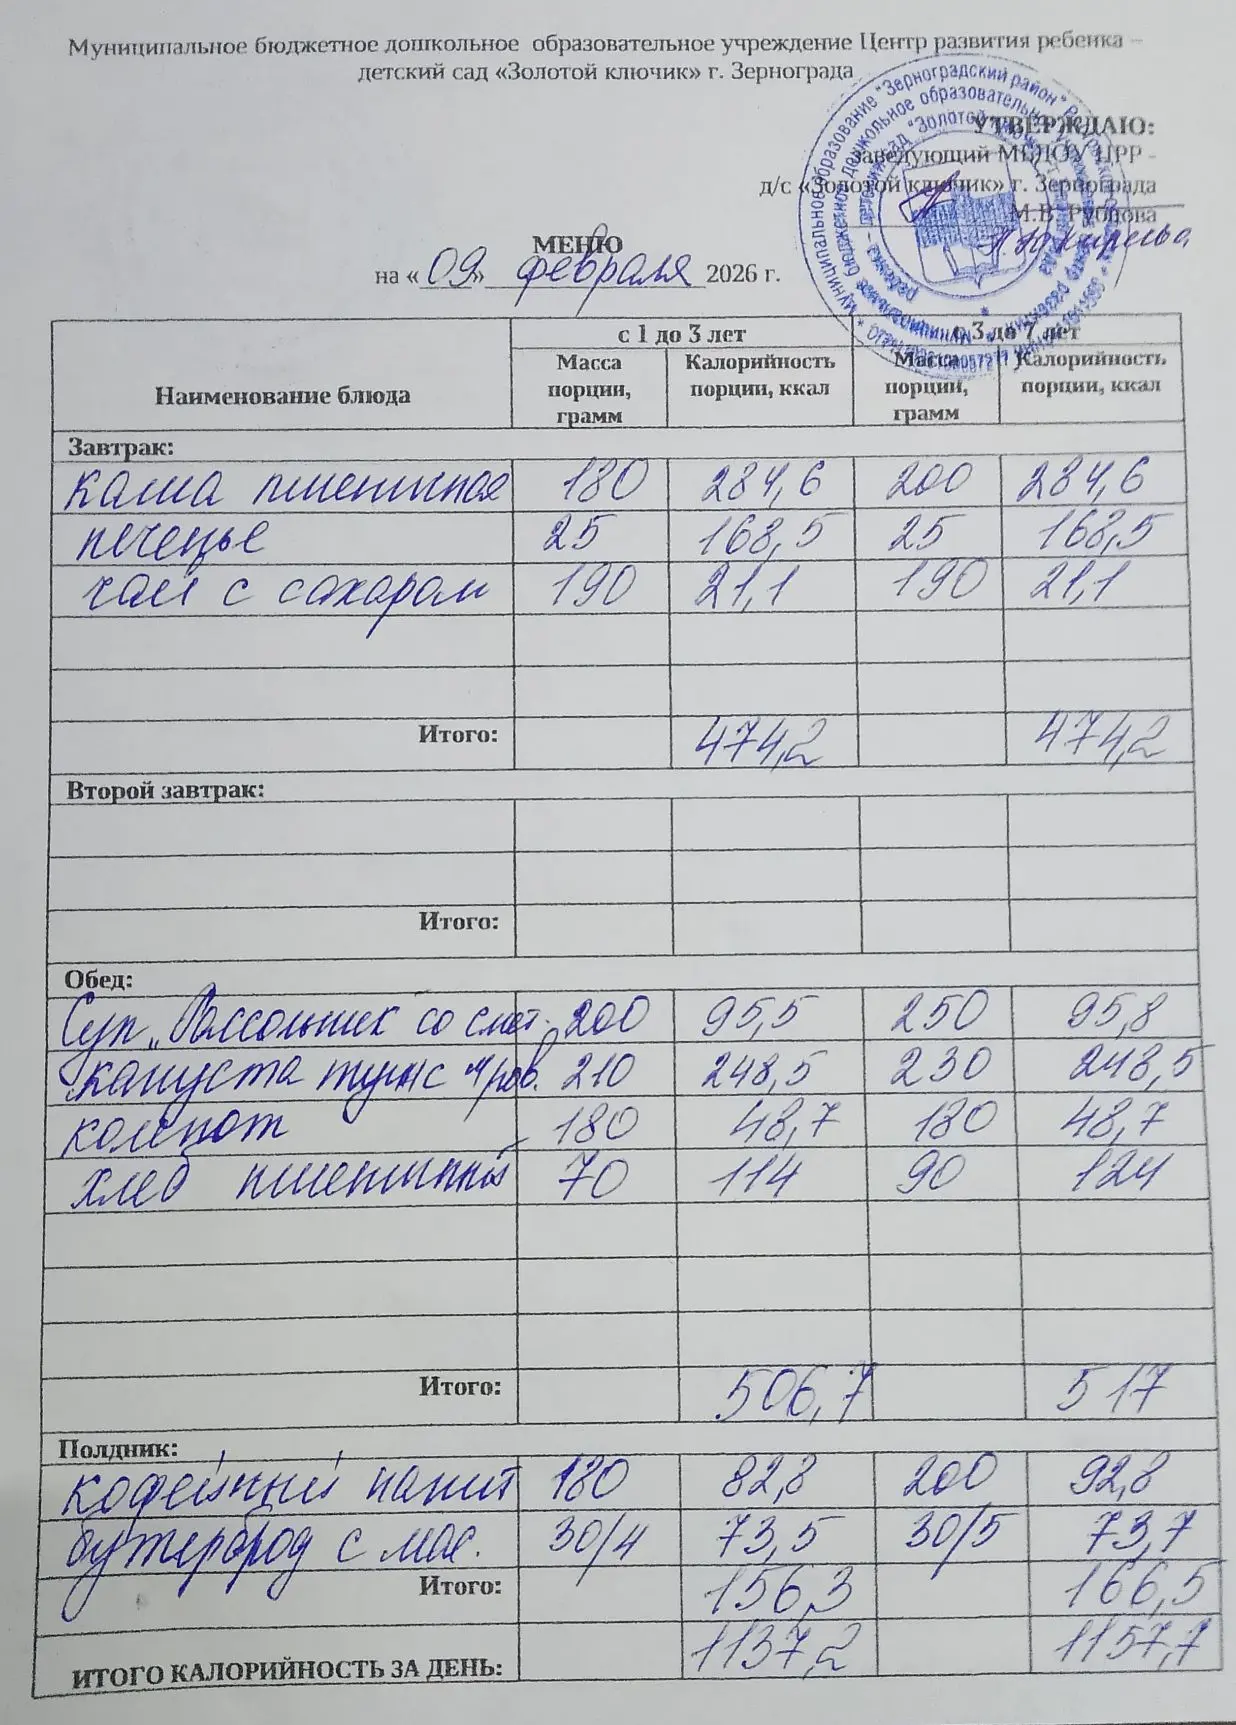 Муниципальное бюджетное дошкольное образовательное учреждение Центр развития ребенка –
детский сад «Золотой ключик» г. Зернограда
УТВЕРЖДАЮ:
заведующий МБДОУ ЦРР -
д/с «Золотой ключик» г. Зернограда
М.В. Рубцова
МЕНЮ
на «09» февраля 2026 г.
Наименование блюда с 1 до 3 лет с 3 до 7 лет
Масса порции, грамм Калорийность порции, ккал Масса порции, грамм Калорийность порции, ккал
Завтрак:
каша пшеничная 180 284,6 200 284,6
печенье 25 168,5 25 168,5
чай с сахаром 190 21,1 190 21,1
Итого: 474,2 474,2
Второй завтрак:
Итого:
Обед:
Суп „Рассольник со смет. 200 95,5 250 95,8
капуста туш с 210 248,5 230 248,5
компот 180 48,7 180 48,7
хлеб пшеничный 70 114 90 124
Итого: 506,7 517
Полдник:
кофейный напит 180 82,8 200 92,8
бутерброд с мас. 30/4 73,5 30/5 73,7
Итого: 156,3 166,5
ИТОГО КАЛОРИЙНОСТЬ ЗА ДЕНЬ: 1137,2 1157,7